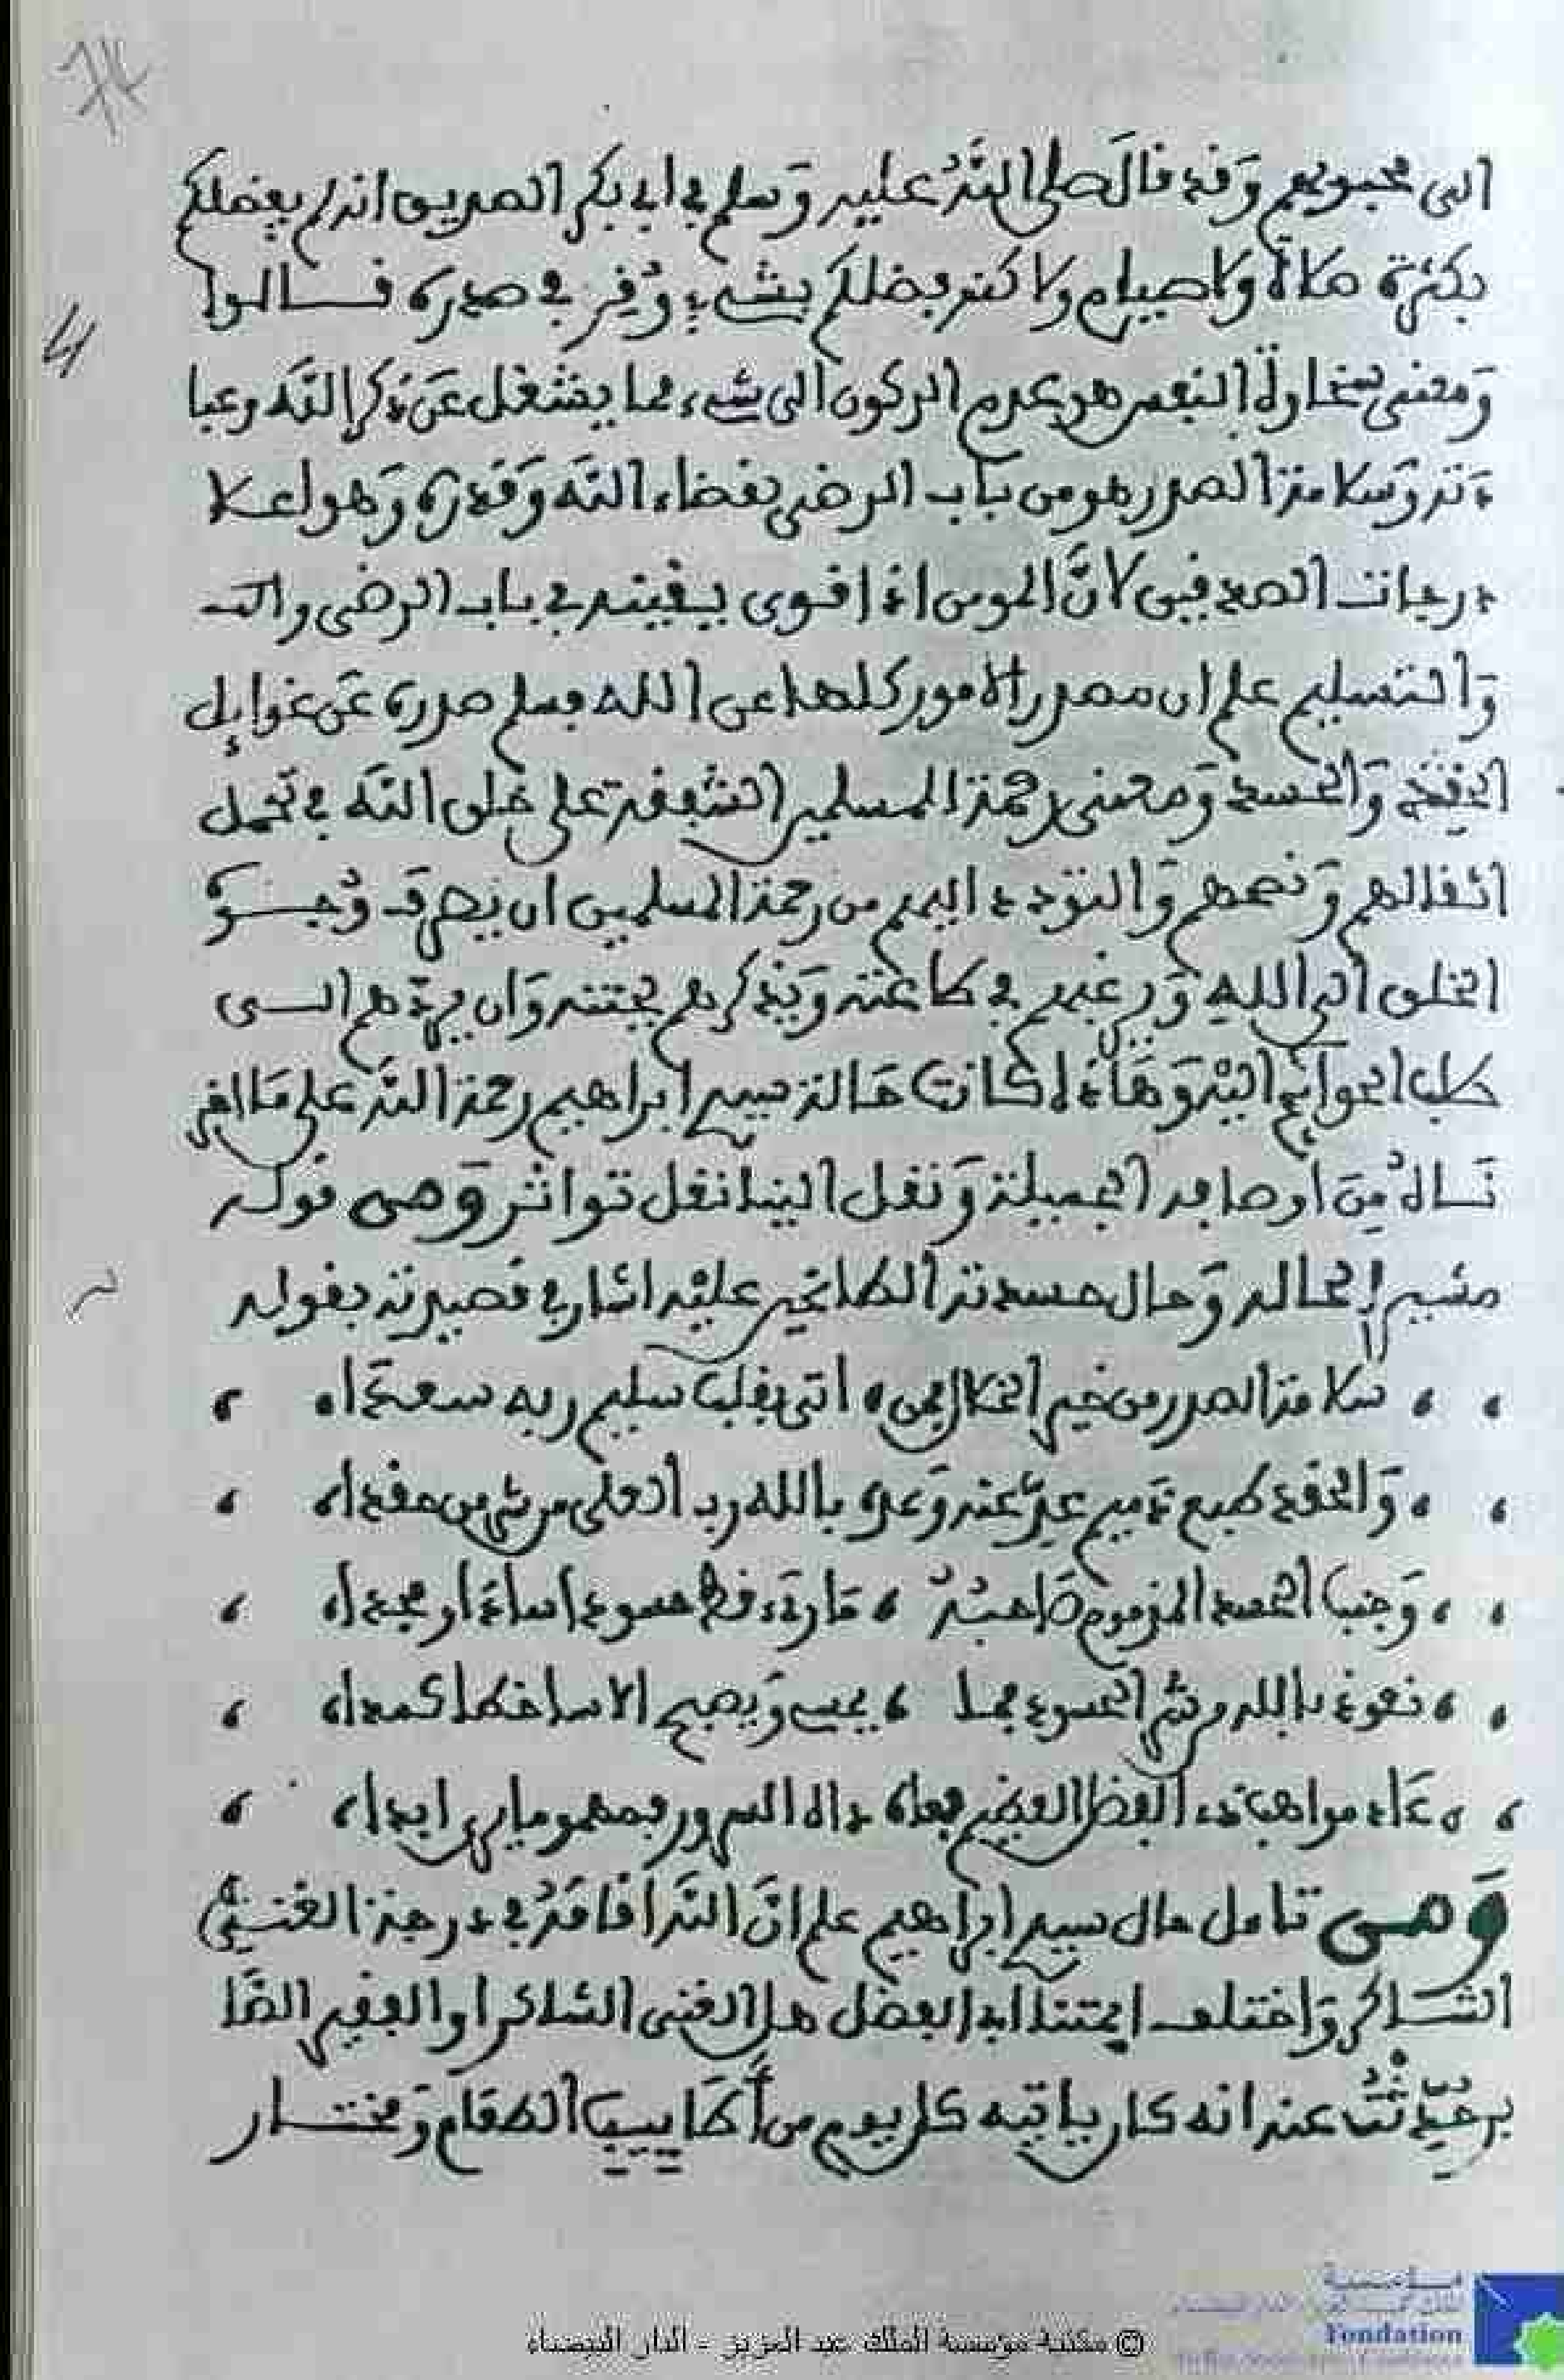 74
الى محبوبهم وقد قال صلى الله عليه وسلم في ابي بكر الصديق انه لم يفضلكم
بكثرة صلاة ولا صيام ولاكنه فضلكم بشيء وُقِر في صدره قالوا
ومعنى سخاوة النفس هو عدم الركون الى شيء مما يشغل عن ذكر الله وعبا
دته وسلامة الصدر هو من باب الرضى بقضاء الله وقدره وهو اعلا
درجات الصديقين لانّ المومن اذا قوى يقينه في باب الرضى والتـ
والتسليم علم ان مصدر الامور كلها عن الله فسلم صدره عن غوايل
والحسد ومعنى رحمة المسلمين الشفقة على خلق الله في تحمل
اثقالهم ونصحهم والتودد اليهم من رحمة المسلمين ان يصرف وجوه
الخلق الى الله ويرغبهم في طاعته ويذكرهم بجنته وان يردّهم الـى
كل الحوايج اليه وهاذه كانت حالة سيدي ابراهيم رحمة الله على ما اخبر
نـاهُ مِن اوصافه الجميلة ونقل الينا نقل تواتر ومن قوله
مشيرا لحاله وحال حسدته الطاغين عليه اشار في قصيدته بقوله
سلامة الصدر من خير الخصال فمن ، اتى بقلب سليم ربه سعدا ،
والحقد طبع ذميم عدّ عنه وعذ بالله رب العلى من شر من حقدا ،
وجنب الحسد المذموم صاحبهُ ، ما زاد قط حسودا ساد او مجدا ،
نعوذ بالله من شر الحسود فما ، يمسي ويصبح الا ساخطا كمدا ،
عاد مواهب ذي الفضل العظيم فعاداه السرور فمهموما يرى ابدا ،
ومن تامل حال سيدي ابراهيم علم انّ الله اقامهُ في درجة الغنـيّ
الشـاكر واختلف ايمتنا ايه افضل هل الغنى الشاكر او الفقير الصا
بر حُدّثتُ عنه انه كان ياتيه كل يوم من أطاييب الطعام ومختـار
© مكتبة مؤسسة الملك عبد العزيز - الدار البيضاء
مؤسسة
Fondation